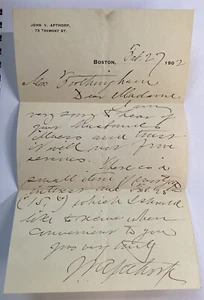 JOHN V. APTHORP,
73 TREMONT ST.
BOSTON, Feb 27 1902
Mrs Frothingham
Dear Madame
I am
very sorry to hear
of your husband's
illness and trust
it will not prove
serious. There is a
small item of
interest due Feb
($15.00) which I should
like to receive when
convenient to you
yours very truly
J V Apthorp